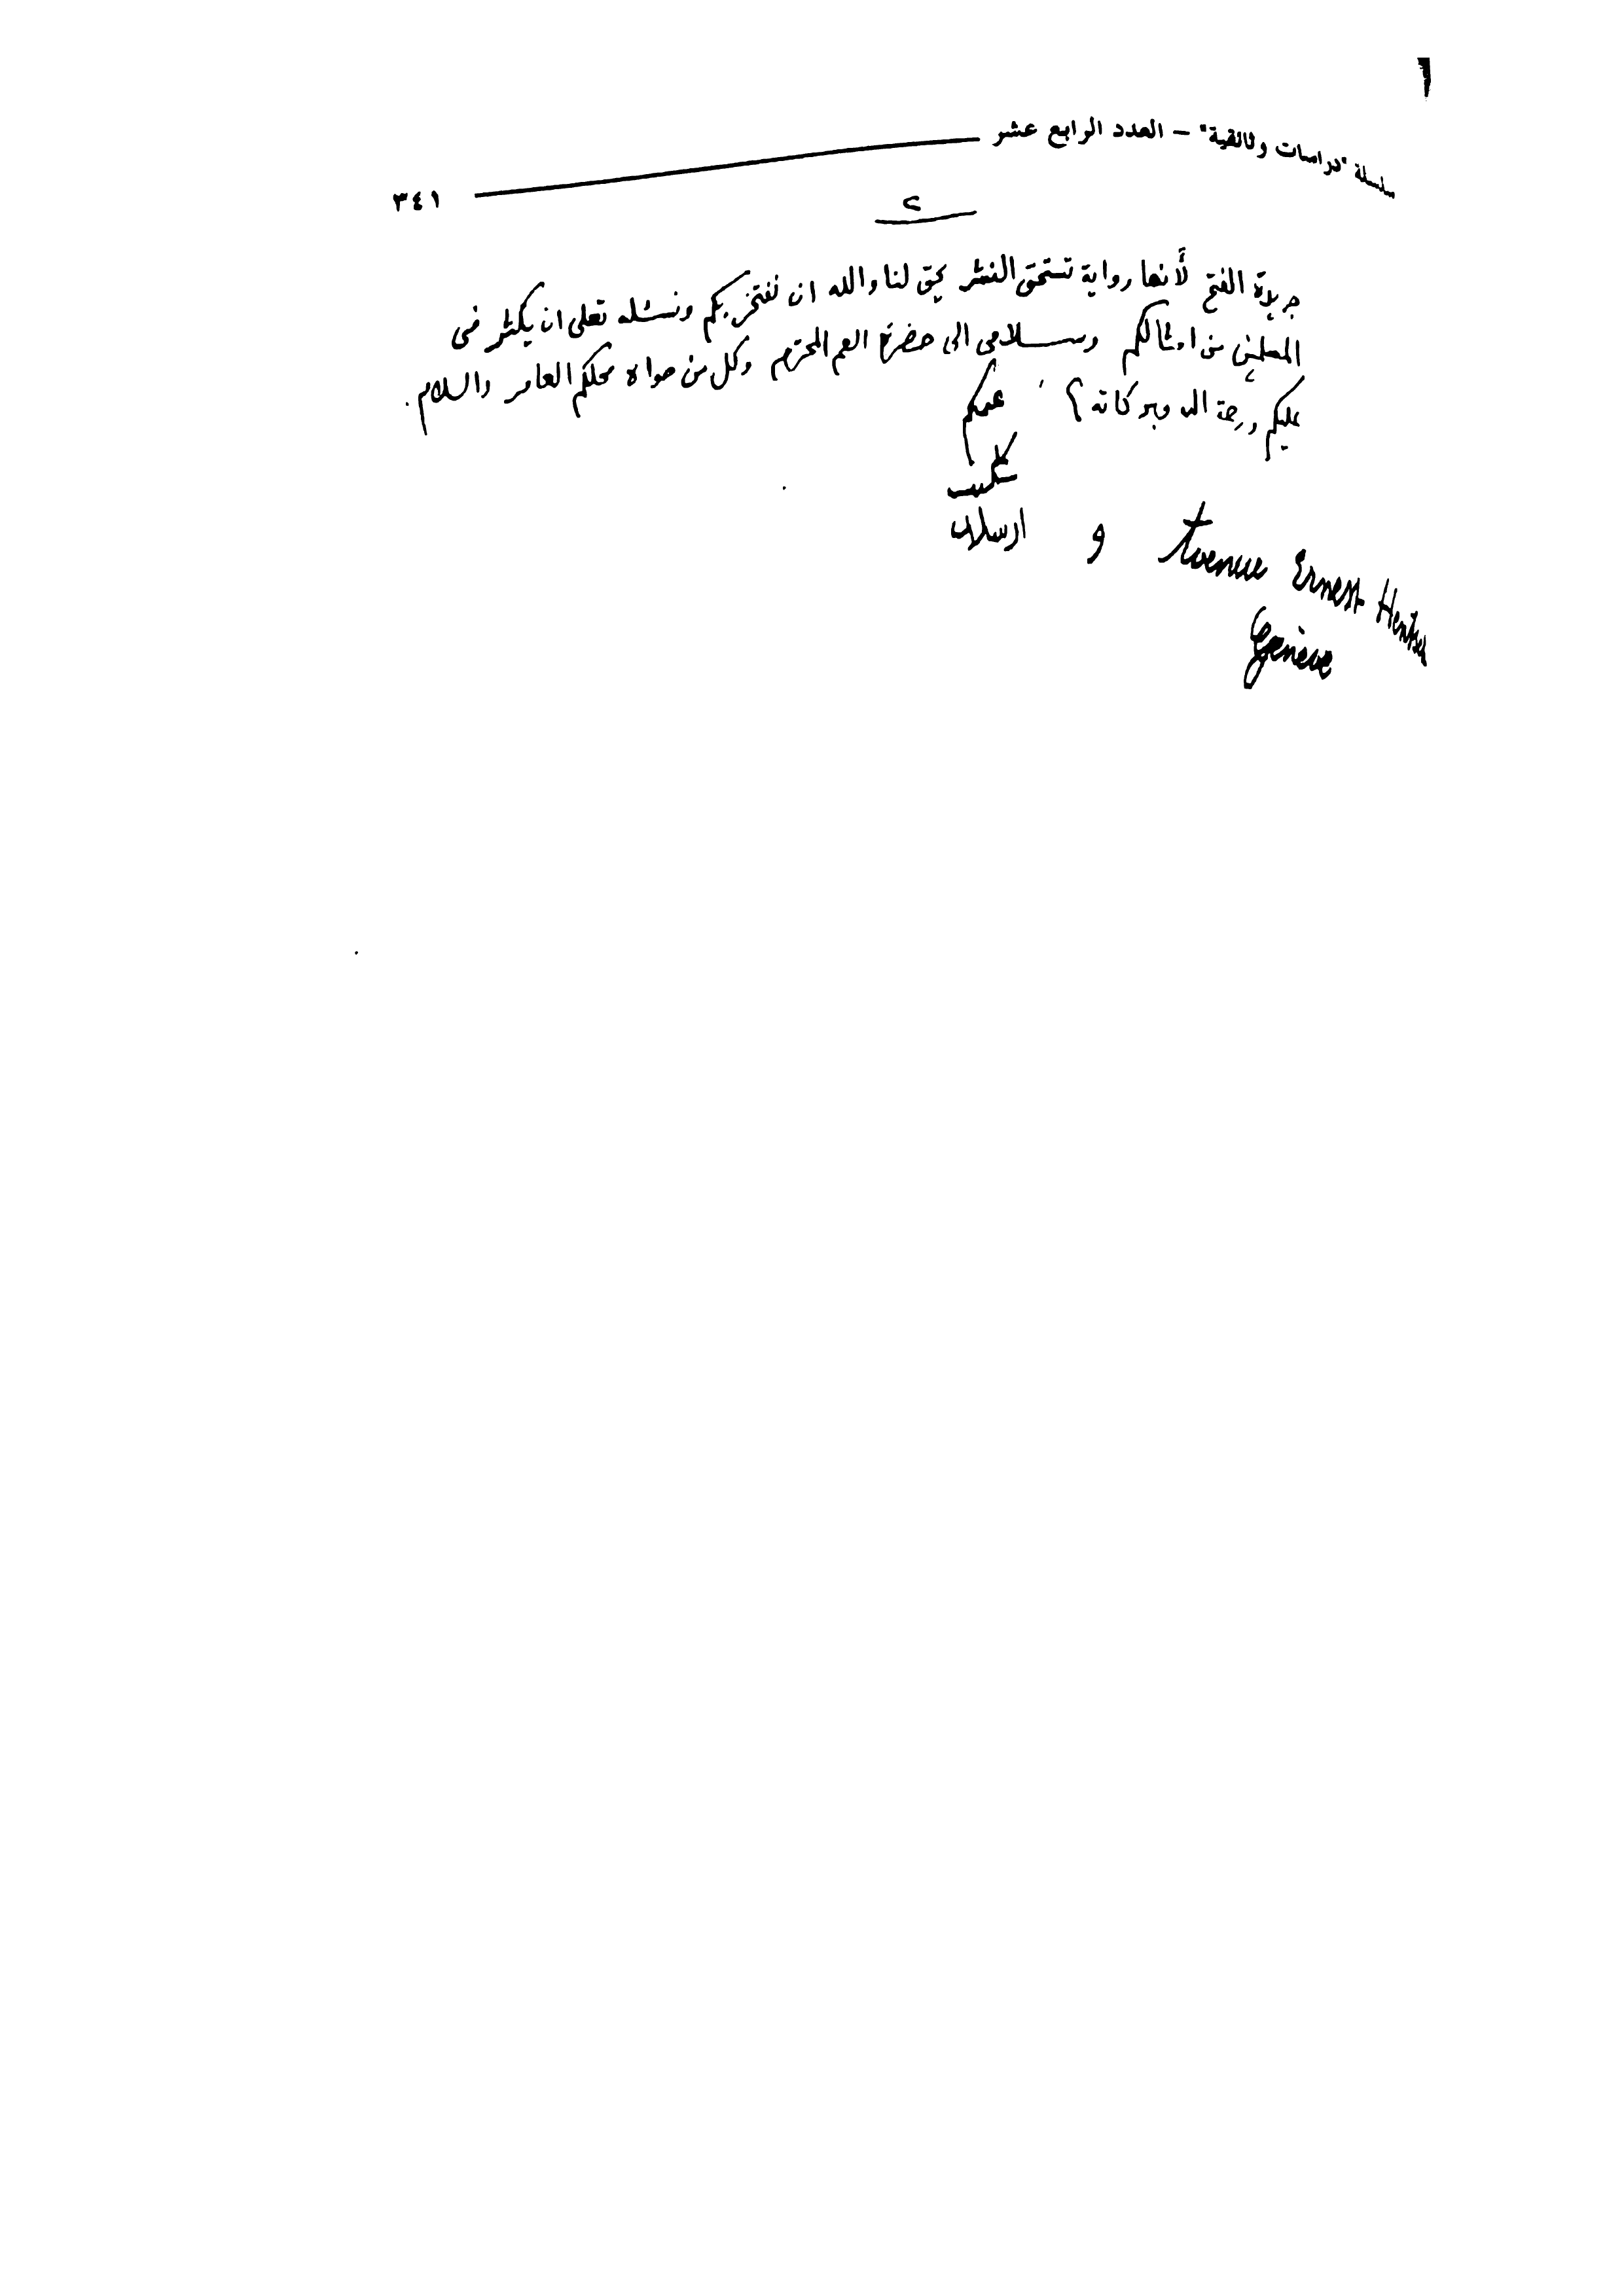 سلسلة "دراسات وثائقية" – العدد الرابع عشر ٣٤١
٢
جريدة الفتح لأنها رواية تستحق النشر يحق لنا والله ان نفتخر بكم ونسئله تعلى ان يكثر فى
المسلمين من امثالكم وسلامى الى حضرة العم المحترم وكل من حواه محلكم العامر والسلام
عليكم ورحمة الله وبركاته
عمكم
شكيب
ارسلان
و Avenue Ernest Hentsch
Genève